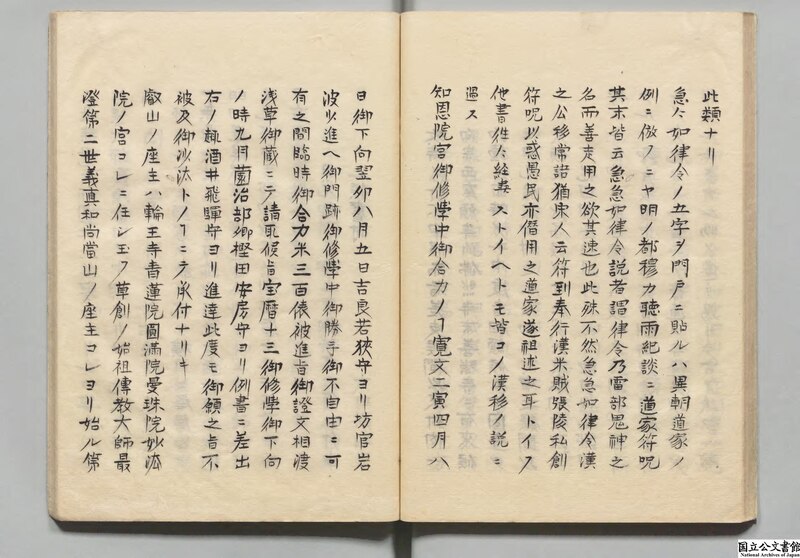 此類ナリ
急々如律令ノ五字ヲ門戸ニ貼ルハ異朝道家ノ
例ニ倣フニヤ明ノ都穆カ聴雨紀談ニ道家符呪
其末皆云急急如律令説者謂律令乃雷部鬼神之
名而善走用之欲其速也此殊不然急急如律令漢
之公移常語猶宋人云符到奉行漢米賊張陵私創
符呪以惑愚民亦僭用之道家遂祖述之耳トイフ
他書往々経典ストイヘトモ皆コノ漢移ノ説ニ
過ス
知恩院宮御修学中御合力ノヿ寛文二寅四月八
日御下向翌卯八月五日吉良若狭守ヨリ坊官岩
波以進ヘ御門跡御修学中御勝手御不自由ニ可
有之間臨時御合力米三百俵被進旨御證文相渡
浅草御蔵ニテ請取候旨宝暦十三御修学御下向
ノ時九月薗治部卿樫田安房守ヨリ例書ニ差出
右ノ趣酒井飛騨守ヨリ進達此度モ御領之旨不
被及御沙汰トノヿニテ承付ナリキ
叡山ノ座主ハ輪王寺青蓮院圓滿院曼珠院妙法
院ノ宮コレニ任シ玉フ草創ノ始祖傳教大師最
澄第二世義真和尚當山ノ座主コレヨリ始ル第
国立公文書館
National Archives of Japan